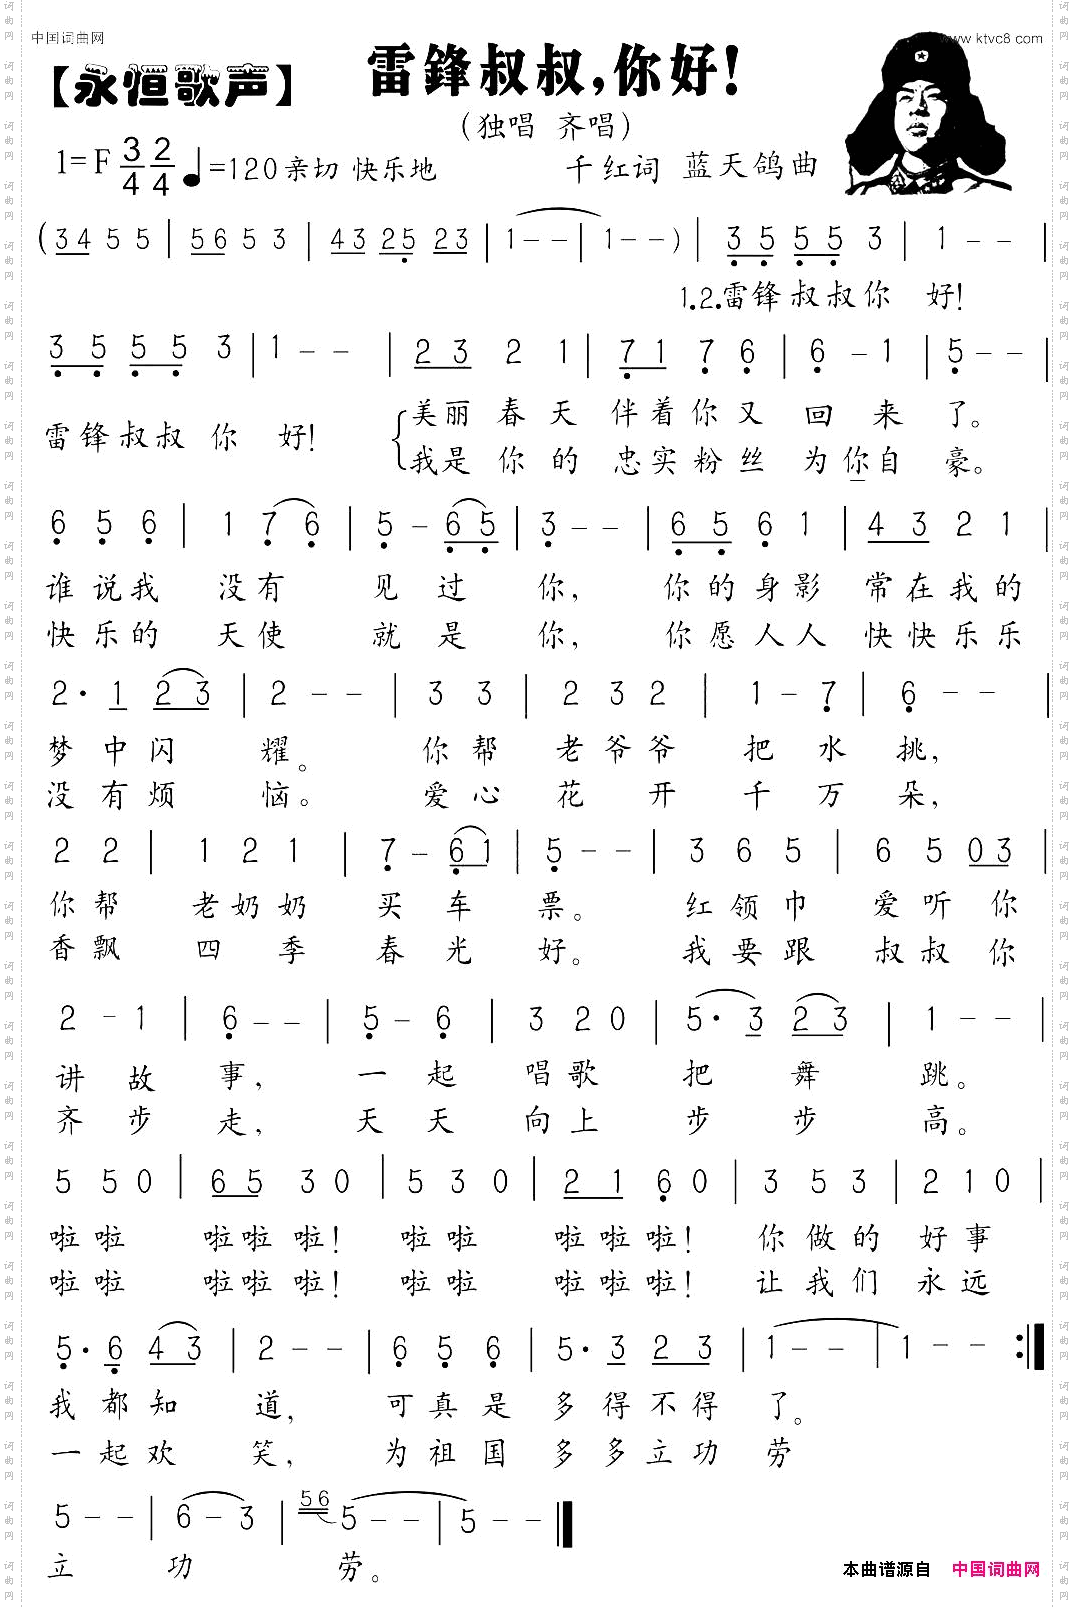 中国词曲网
www.ktvc8.com
【永恒歌声】
雷鋒叔叔,你好!
(独唱 齐唱)
1=F 3/4 2/4 ♩=120 亲切 快乐地
千红词 蓝天鸽曲
(3 4 5 5 | 5 6 5 3 | 4 3 2 5 2 3 | 1 - - | 1 - - ) | 3 5 5 5 3 | 1 - - |
1.2.雷锋叔叔你 好!
3 5 5 5 3 | 1 - - | 2 3 2 1 | 7 1 7 6 | 6 - 1 | 5 - - |
雷锋叔叔 你 好!
美丽 春天 伴着你又 回 来 了。
我是 你的 忠实粉丝 为你自 豪。
6 5 6 | 1 7 6 | 5 - 6 5 | 3 - - | 6 5 6 1 | 4 3 2 1 |
谁说我 没有 见 过 你, 你的身影 常在我的
快乐的 天使 就 是 你, 你愿人人 快快乐乐
2 · 1 2 3 | 2 - - | 3 3 | 2 3 2 | 1 - 7 | 6 - - |
梦 中闪 耀。 你帮 老爷爷 把 水 挑,
没有烦 恼。 爱心 花 开 千 万 朵,
2 2 | 1 2 1 | 7 - 6 1 | 5 - - | 3 6 5 | 6 5 0 3 |
你帮 老奶奶 买 车 票。 红领巾 爱听 你
香飘 四 季 春 光 好。 我要跟 叔叔 你
2 - 1 | 6 - - | 5 - 6 | 3 2 0 | 5 · 3 2 3 | 1 - - |
讲 故 事, 一 起 唱歌 把 舞 跳。
齐 步 走, 天 天 向上 步 步 高。
5 5 0 | 6 5 3 0 | 5 3 0 | 2 1 6 0 | 3 5 3 | 2 1 0 |
啦啦 啦啦 啦! 啦啦 啦啦啦! 你做的 好事
啦啦 啦啦 啦! 啦啦 啦啦啦! 让我们 永远
5 · 6 4 3 | 2 - - | 6 5 6 | 5 · 3 2 3 | 1 - - | 1 - - :|
我 都知 道, 可真是 多得不得 了。
一起欢 笑, 为祖国 多多立功 劳
5 - - | 6 - 3 | 56 5 - - | 5 - - ‖
立 功 劳。
本曲谱源自 中国词曲网